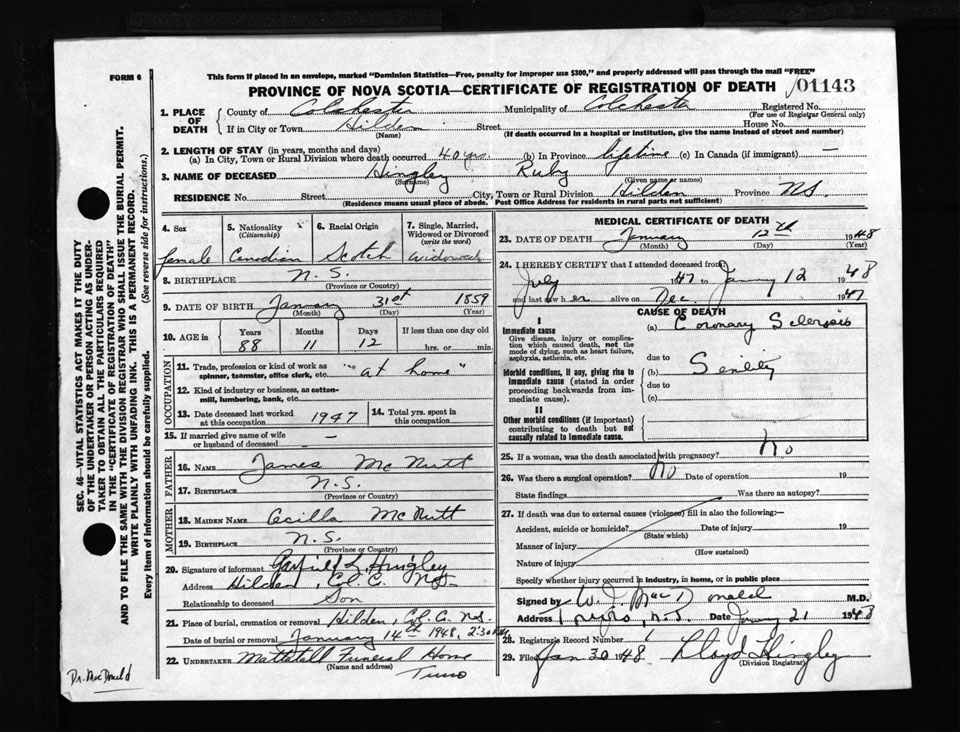 FORM 6
This form if placed in an envelope, marked "Dominion Statistics—Free, penalty for improper use $300," and properly addressed will pass through the mail "FREE"
PROVINCE OF NOVA SCOTIA—CERTIFICATE OF REGISTRATION OF DEATH 01143
1. PLACE OF DEATH County of Colchester Municipality of Colchester Registered No.
(For use of Registrar General only)
If in City or Town Hilden Street House No.
(Name) (If death occurred in a hospital or institution, give the name instead of street and number)
2. LENGTH OF STAY (in years, months and days)
(a) In City, Town or Rural Division where death occurred 40 yrs. (b) In Province lifetime (c) In Canada (if immigrant) —
3. NAME OF DECEASED Hingley Ruby
(Surname) (Given name or names)
RESIDENCE No. Street City, Town or Rural Division Hilden Province N.S.
(Residence means usual place of abode. Post Office Address for residents in rural parts not sufficient)
4. Sex 5. Nationality (Citizenship) 6. Racial Origin 7. Single, Married, Widowed or Divorced (write the word)
female Canadian Scotch Widowed
8. BIRTHPLACE N.S.
(Province or Country)
9. DATE OF BIRTH January 31st 1859
(Month) (Day) (Year)
10. AGE in Years Months Days If less than one day old
88 11 12 hrs. or min.
OCCUPATION
11. Trade, profession or kind of work as spinner, teamster, office clerk, etc. "at home"
12. Kind of industry or business, as cotton-mill, lumbering, bank, etc.
13. Date deceased last worked at this occupation 1947 14. Total yrs. spent in this occupation
15. If married give name of wife or husband of deceased —
FATHER
16. NAME James McNutt
17. BIRTHPLACE N.S.
(Province or Country)
MOTHER
18. MAIDEN NAME Cecilla McNutt
19. BIRTHPLACE N.S.
(Province or Country)
20. Signature of informant Garfield L. Hingley
Address Hilden, Col. C. N.S.
Relationship to deceased Son
21. Place of burial, cremation or removal Hilden, Col. C. N.S.
Date of burial or removal January 14th 1948, 2:30
22. UNDERTAKER Mattatall Funeral Home
(Name and address) Truro
MEDICAL CERTIFICATE OF DEATH
23. DATE OF DEATH January 12th 1948
(Month) (Day) (Year)
24. I HEREBY CERTIFY that I attended deceased from:
July 47 to January 12 1948
and last saw her alive on Dec. 1947
CAUSE OF DEATH
I
Immediate cause (a) Coronary Sclerosis
Give disease, injury or complication which caused death, not the mode of dying, such as heart failure, asphyxia, asthenia, etc.
due to
Morbid conditions, if any, giving rise to immediate cause (stated in order proceeding backwards from immediate cause). (b) Senility
due to
(c)
II
Other morbid conditions (if important) contributing to death but not causally related to immediate cause.
25. If a woman, was the death associated with pregnancy? No
26. Was there a surgical operation? No Date of operation 19
State findings Was there an autopsy?
27. If death was due to external causes (violence) fill in also the following:—
Accident, suicide or homicide? Date of injury 19
(State which)
Manner of injury
(How sustained)
Nature of injury
Specify whether injury occurred in industry, in home, or in public place
Signed by W. J. MacDonald M.D.
Address Truro, N.S. Date January 21 1948
28. Registrars Record Number 1
29. Filed Jan 30 1948 Lloyd Hingley
(Division Registrar)
SEC. 46—VITAL STATISTICS ACT MAKES IT THE DUTY
OF THE UNDERTAKER OR PERSON ACTING AS UNDER-
TAKER TO OBTAIN ALL THE PARTICULARS REQUIRED
IN THE "CERTIFICATE OF REGISTRATION OF DEATH"
AND TO FILE THE SAME WITH THE DIVISION REGISTRAR WHO SHALL ISSUE THE BURIAL PERMIT.
WRITE PLAINLY WITH UNFADING INK. THIS IS A PERMANENT RECORD.
Every item of information should be carefully supplied. (See reverse side for instructions.)
Dr. MacDonald